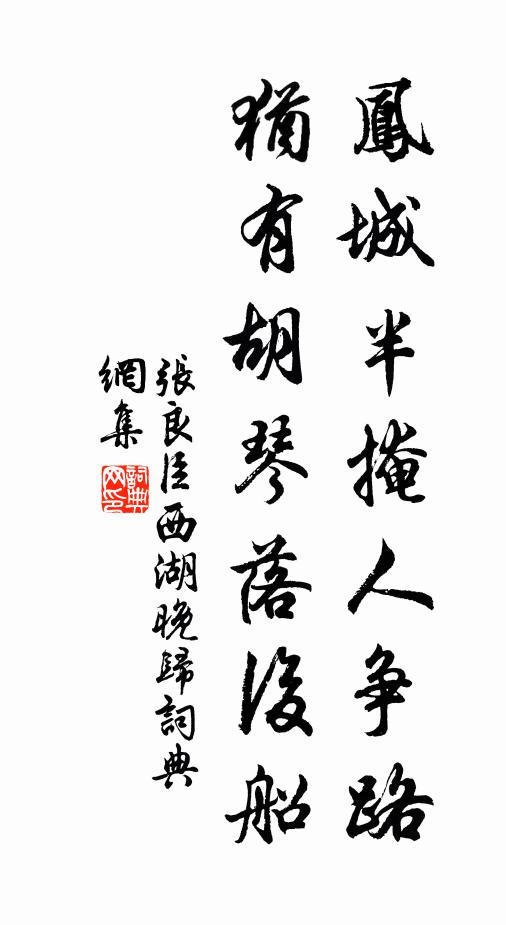 鳳城半掩人争路
猶有胡琴落後船
張良臣西湖晚歸詞典
網集
詞典
网印